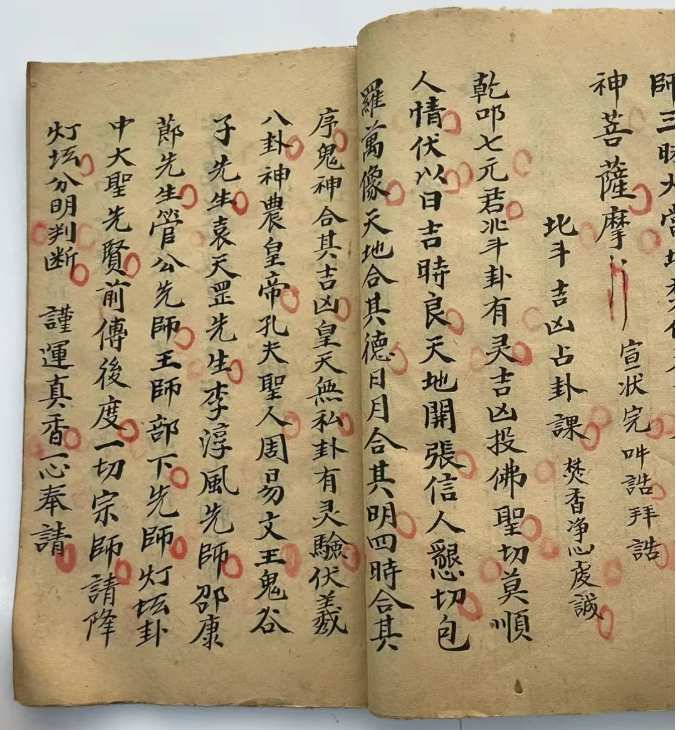 師三昧大
神菩薩摩 宣状完吽誥拜誥
北斗吉凶占卦課 焚香净心虔誠
乾叩七元君北斗卦有灵吉凶投佛聖切莫順
人情伏以日吉時良天地開張信人懇切包
羅萬像天地合其德日月合其明四時合其
序鬼神合其吉凶皇天無私卦有灵驗伏羲
八卦神農皇帝孔夫聖人周易文王鬼谷
子先生袁天罡先生李淳風先師邵康
節先生管公先師王師部下先師灯坛卦
中大聖先賢前傳後度一切宗師請降
灯坛分明判断 謹運真香一心奉請